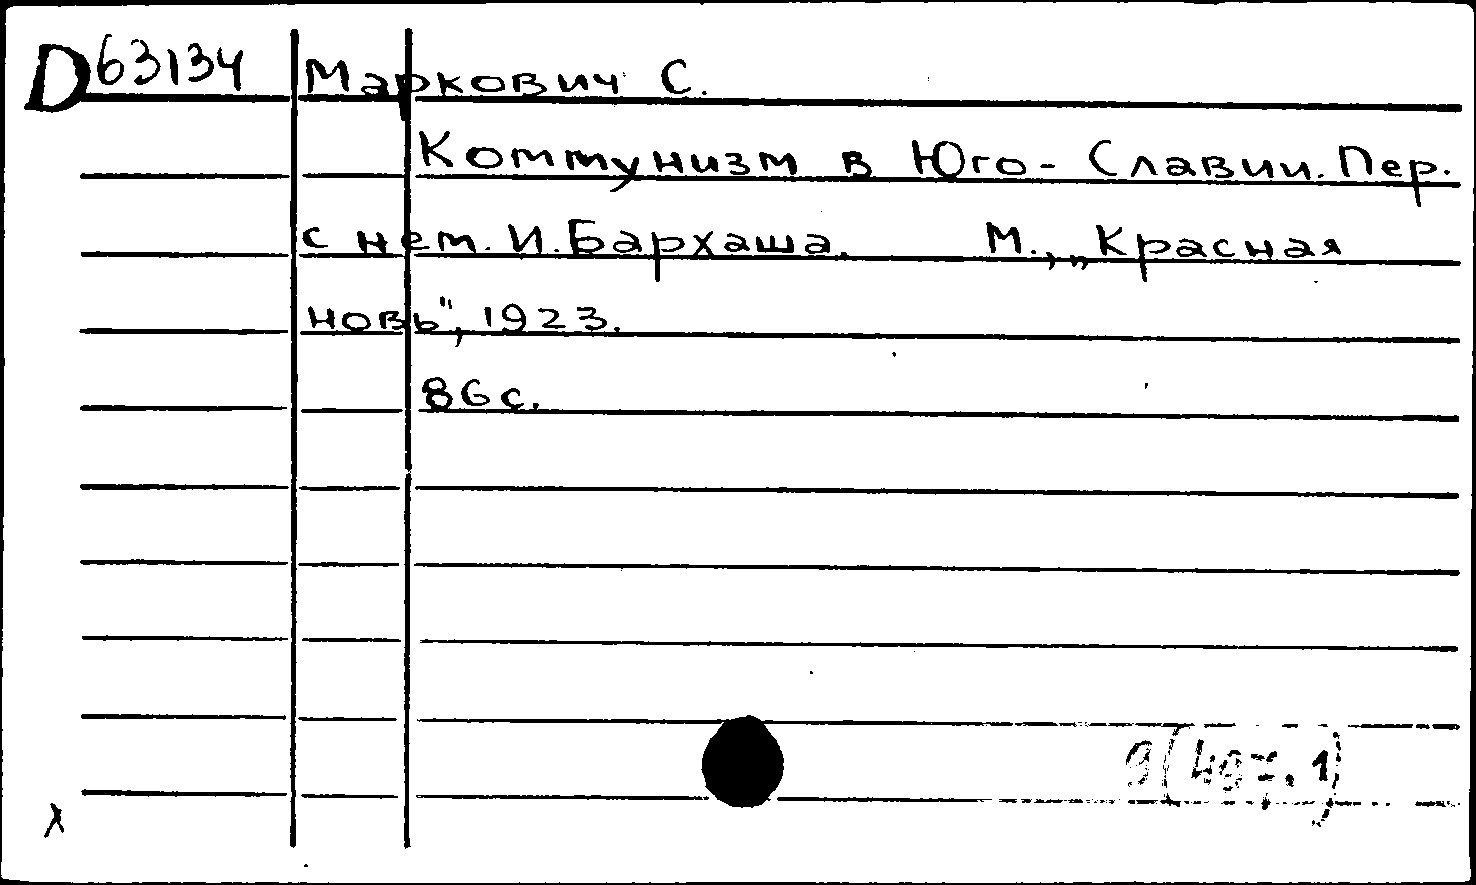 D63134 Маркович С.
Коммунизм в Юго-Славии. Пер.
с нем. И. Бархаша. М., „Красная
новь", 1923.
86 с.
9(497.1)
х